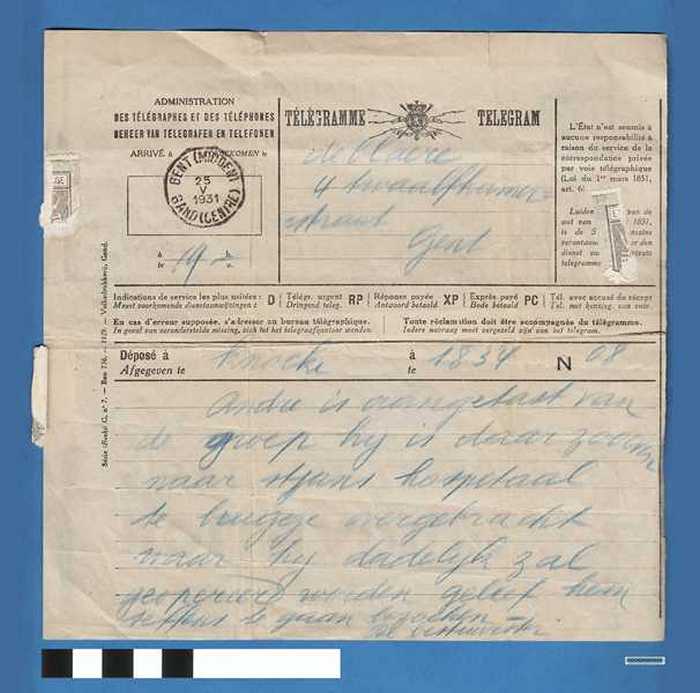 ADMINISTRATION
DES TÉLÉGRAPHES ET DES TÉLÉPHONES
BEHEER VAN TELEGRAFEN EN TELEFONEN
ARRIVÉ à
GENT (MIDDEN)
25
V
1931
GAND (CENTRE)
à h.
te u.
19
TÉLÉGRAMME TELEGRAM
4 twaalfkamer-
straat
Gent
L'État n'est soumis à
aucune responsabilité à
raison du service de la
correspondance privée
par voie télégraphique
(Loi du 1er mars 1851,
art. 6)
Luidens de
1851,
is de
verantwoor der
dienst
telegramme
Indications de service les plus usitées : D Télégr. urgent RP Réponse payée XP Exprès payé PC Tél. avec accusé de récept
Meest voorkomende dienstaanwijzingen : Dringend teleg. Antwoord betaald Bode betaald Tel. met kennisg. van ontv.
En cas d'erreur supposée, s'adresser au bureau télégraphique. Toute réclamation doit être accompagnée du télégramme.
In geval van veronderstelde missing, zich tot het telegraafkantoor wenden. Iedere navraag moet vergezeld zijn van het telegram.
Déposé à Knocke à 1834 N 08
Afgegeven te te
Série (Reeks) C. n° 7. — Bon 736. — 1929. — Volksdrukkerij, Gand.
Andre is aangetast van
de groep hy is daar zooeven
naar stjans hospetaal
te brugge overgebracht
waar hy dadelyk zal
geopereerd worden gelief hem
seffens te gaan bezoeken